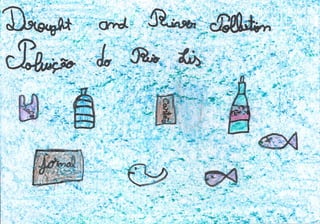 Drought and River Pollution
Poluição do Rio Lis
Jornal